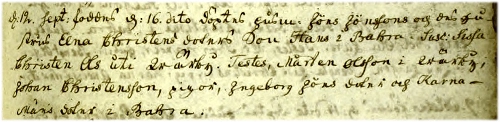 d. 12. Sept: föddes d: 16. dito döptes Husm: Jöns Jönssons och des hu
strus Elna Christens dotters Son Hans i Bahra. Susc: Sissa
Christen Els uti Qvärby. Testes, Mårten Olsson i Qvärby,
Johan Christensson, pigor, Ingeborg Jöns dotter och Karna
Måns dotter i Bahra.